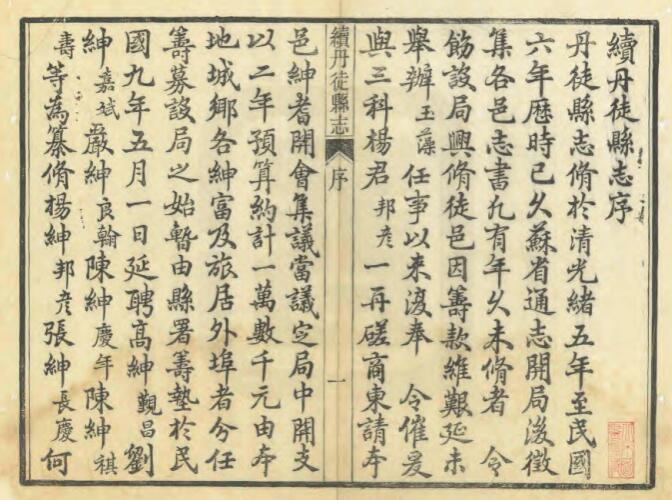 續丹徒縣志序
丹徒縣志脩於清光緒五年至民國
六年歷時已久蘇省通志開局後徵
集各邑志書凡有年久未脩者 令
飭設局興脩徒邑因籌款維艱延未
舉辦玉藻任事以來復奉 令催爰
與三科楊君邦彥一再磋商柬請本
續丹徒縣志 序 一
邑紳耆開會集議當議定局中開支
以二年預算約計一萬數千元由本
地城鄉各紳富及旅居外埠者分任
籌募設局之始暫由縣署籌墊於民
國九年五月一日延聘高紳覲昌劉
紳嘉斌嚴紳良翰陳紳慶年陳紳祺
壽等為纂脩楊紳邦彥張紳長慶何